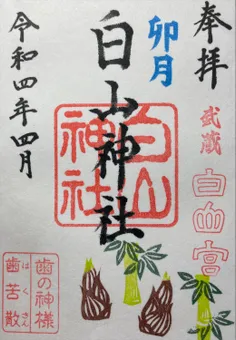 奉拝
武蔵
白山宮
卯月
白山神社
白山神社
令和四年四月
歯の神様
はくさん
歯苦散